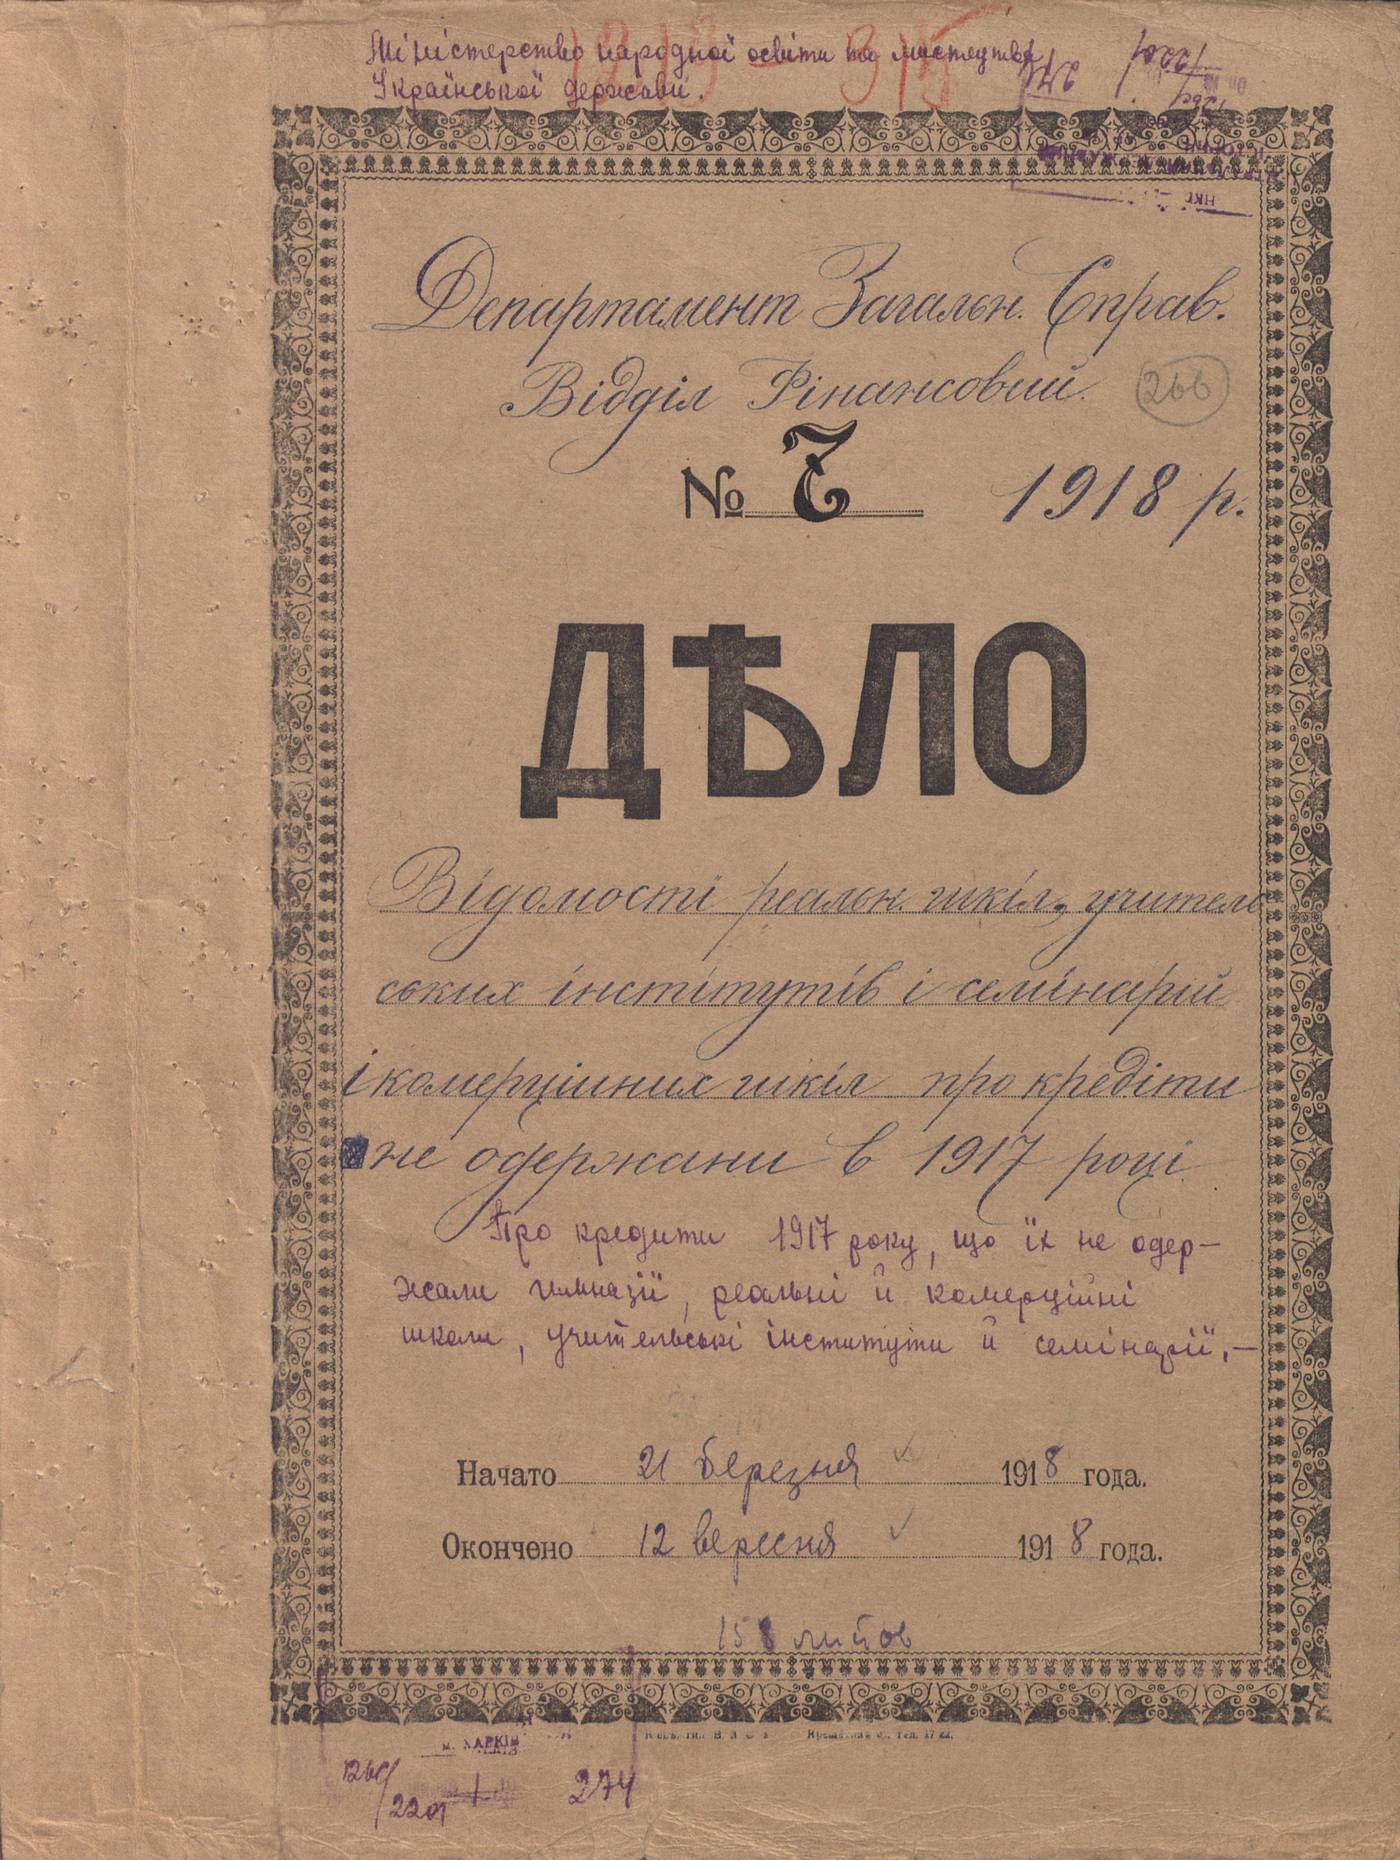 Міністерство народної освіти та мистецтва
Української держави.
274
Департамент Загальн. Справ.
Відділ Фінансовий.
266
№ 7 1918 р.
ДѢЛО
Відомості реальн. шкіл, учитель
ських інстітутів і семінарій
і комерційних шкіл про кредіти
не одержани в 1917 році.
Про кредити 1917 року, що їх не одер–
жали гімназії, реальні й комерційні
школи, учительські інститути й семінарії.—
Начато 21 березня 1918 года.
Окончено 12 вересня 1918 года.
158 листов
м. ХАРКІВ
2201 1 274